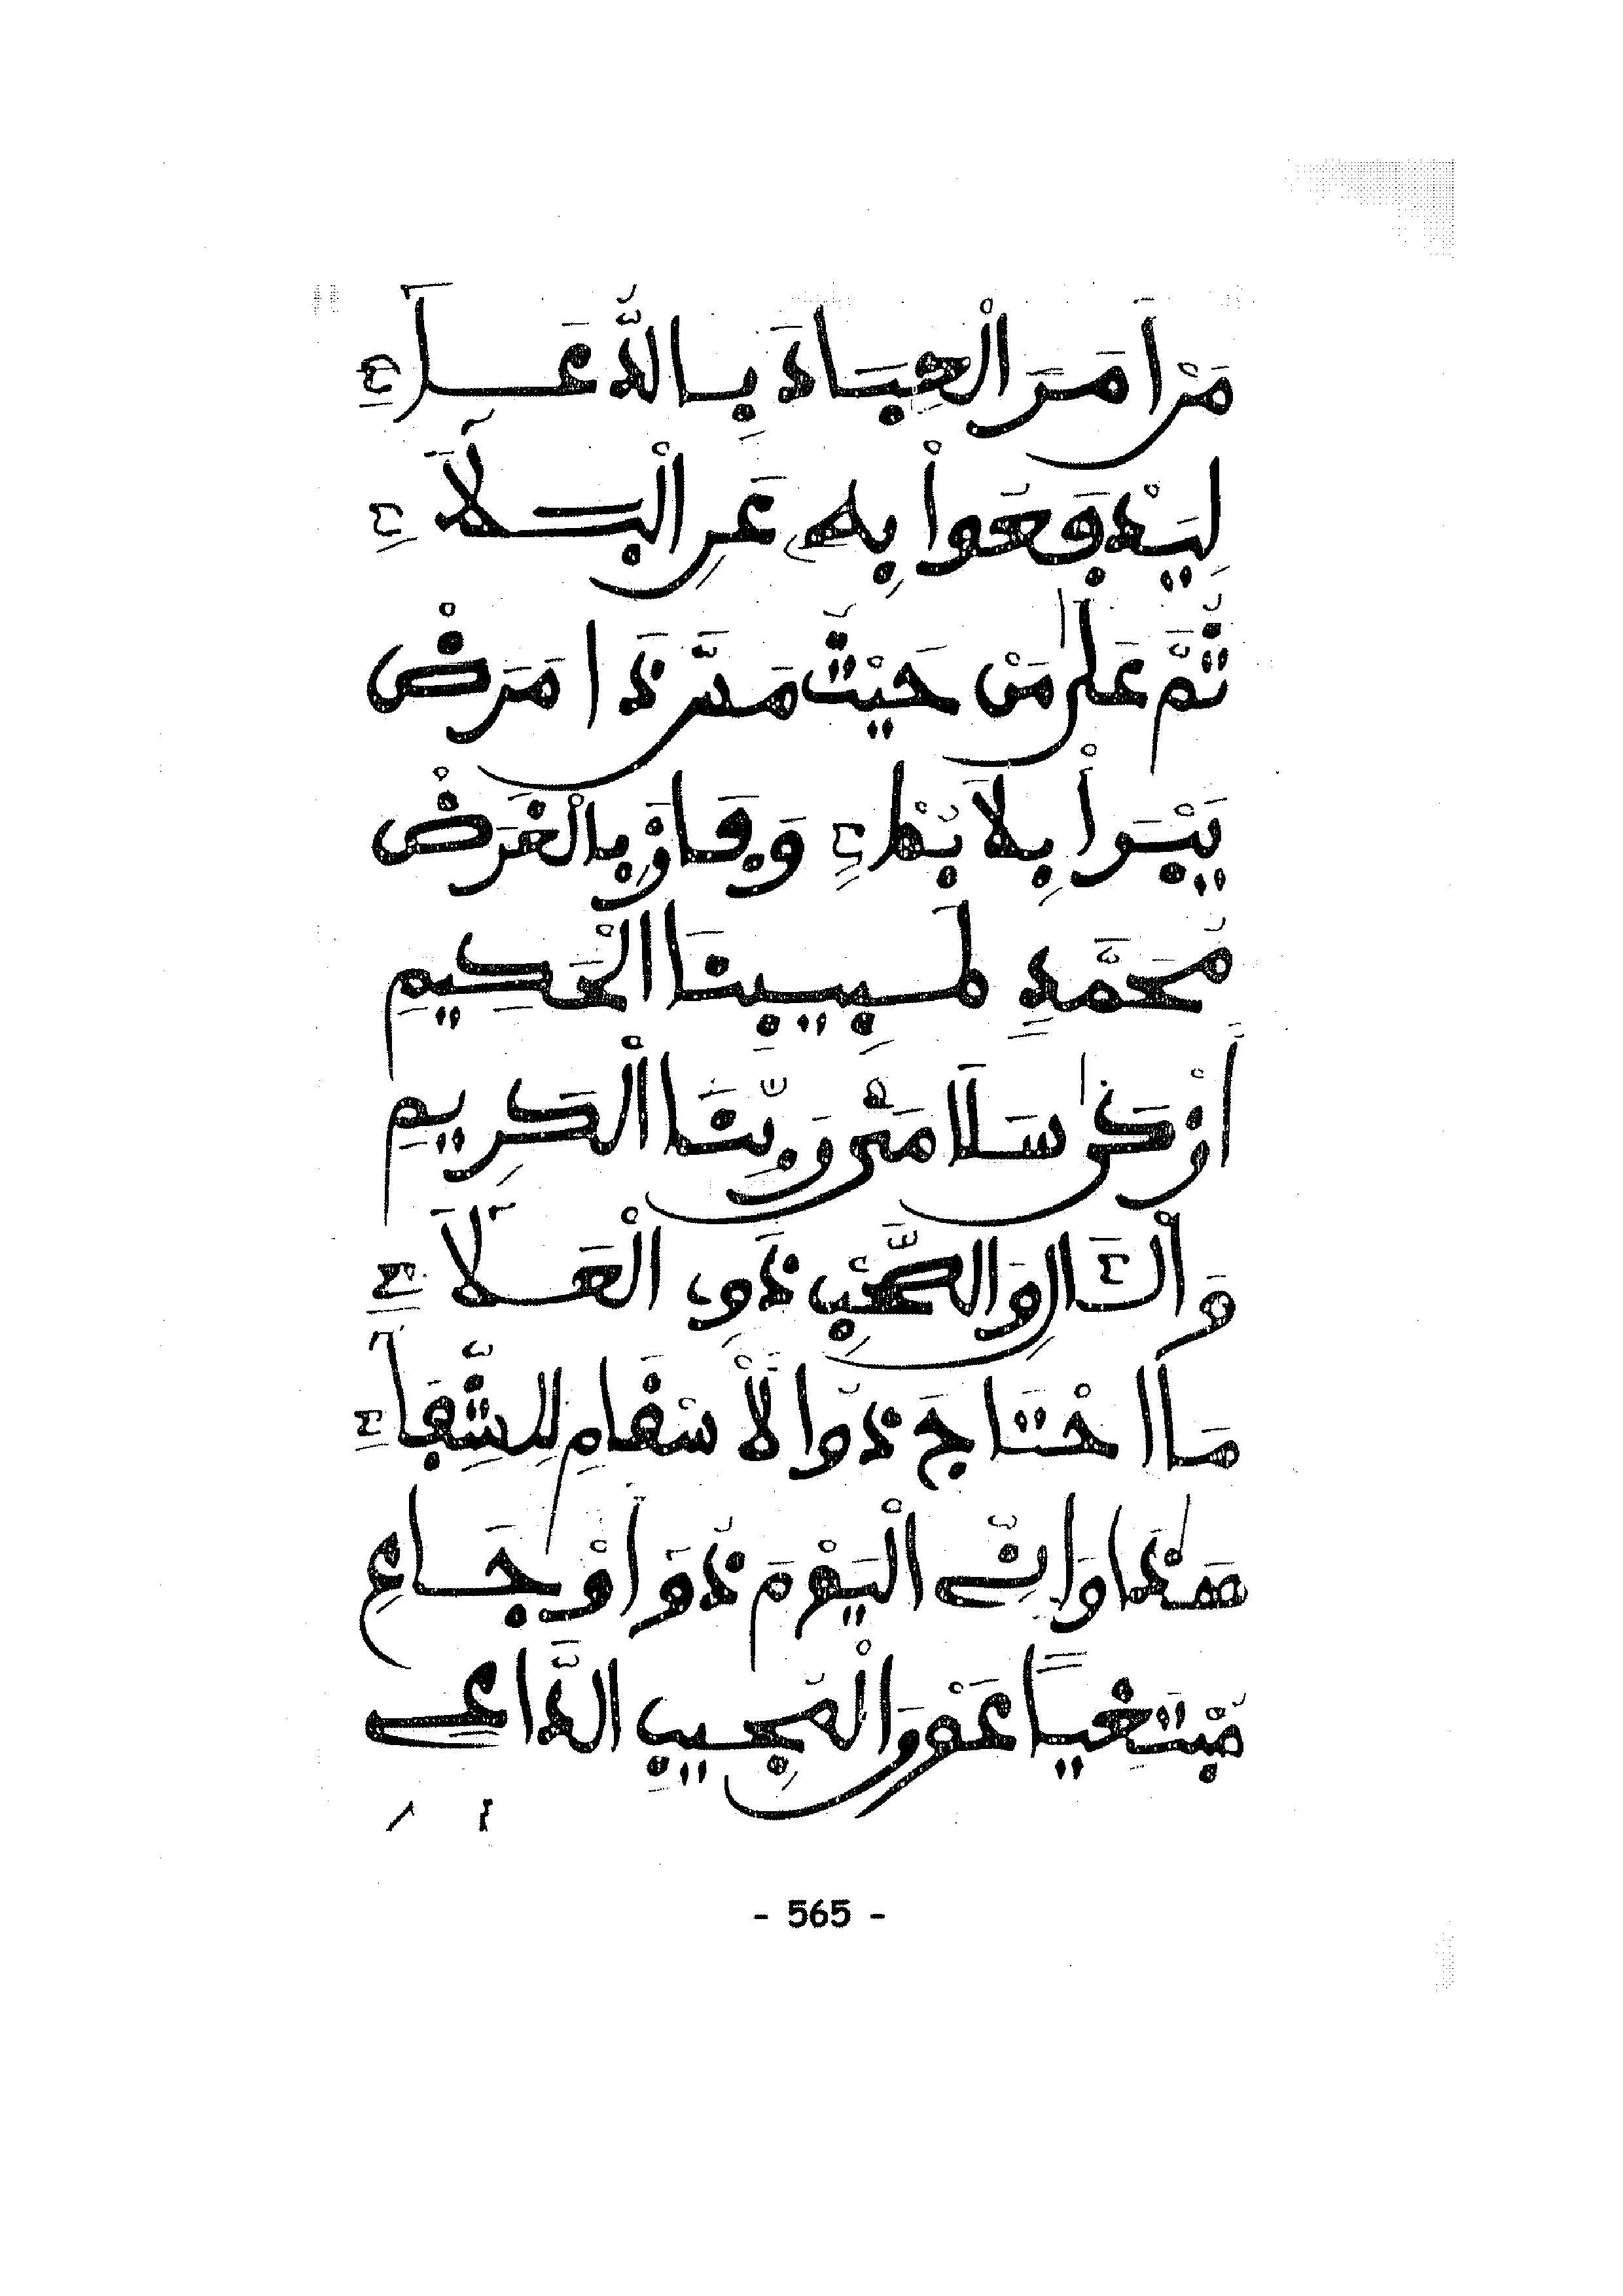 مَنْ اَمَرَ الْعِبَادَ بِالدُّعَآءِ
لِيَدْفَعُوا بِهِ عَنِ الْبَلَآءِ
ثُمَّ عَلَى مَنْ حَيْثُ مَسَّ ذَا مَرَضْ
يَبْرَأْ بِلَا بُطْءٍ وَفَازَ بِالْغَرَضْ
مُحَمَّدٍ طَبِيبِنَا الْحَكِيمِ
أَزْكَى سَلَامَيْ رَبِّنَا الْكَرِيمِ
وَالْآلِ وَالصَّحْبِ ذَوِي الْعَلَآءِ
مَا احْتَاجَ ذُو الْأَسْقَامِ لِلشِّفَآءِ
هَذَا وَإِنِّي الْيَوْمَ ذُو أَوْجَاعِ
مُبْتَغِيًا عَفْوَ الْمُجِيبِ الدَّاعِي
- 565 -